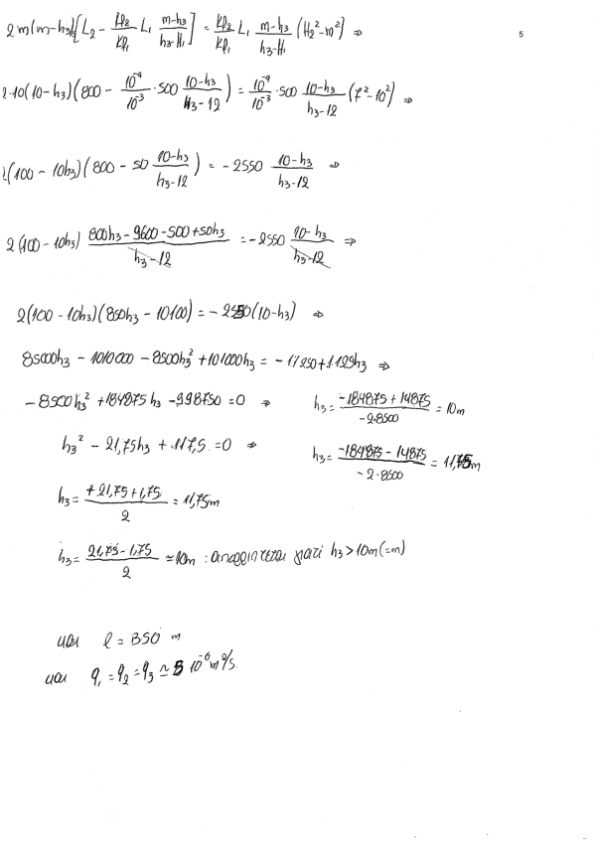 5
2m(m-h₃)[L₂ - Kp₂/Kp₁ L₁ (m-h₃)/(h₃-H₁)] = Kp₂/Kp₁ L₁ (m-h₃)/(h₃-H₁) (H₂²-m²) ⇒
2·10(10-h₃)(800 - 10⁻⁴/10⁻³ · 500 (10-h₃)/(h₃-12)) = 10⁻⁴/10⁻³ · 500 (10-h₃)/(h₃-12) (7²-10²) ⇒
2(100 - 10h₃)(800 - 50 (10-h₃)/(h₃-12)) = -2550 (10-h₃)/(h₃-12) ⇒
2(100-10h₃) (800h₃ - 9600 - 500 + 50h₃)/(h₃-12) = -2550 (10-h₃)/(h₃-12) ⇒
2(100-10h₃)(850h₃ - 10100) = -2550(10-h₃) ⇒
- 8500h₃² + 184875h₃ - 998750 = 0 ⇒ h₃ = (-184875 + 14875)/(-2·8500) = 10m
h₃² - 21,75h₃ + 117,5 = 0 ⇒ h₃ = (-184875 - 14875)/(-2·8500) = 11,75m
h₃ = (+21,75+1,75)/2 = 11,75m
h₃ = (21,75-1,75)/2 = 10m : απορρίπτεται γιατί h₃ > 10m (=m)
και l = 350 m
και q₁ = q₂ = q₃ ≃ 5 10⁻⁶ m²/s